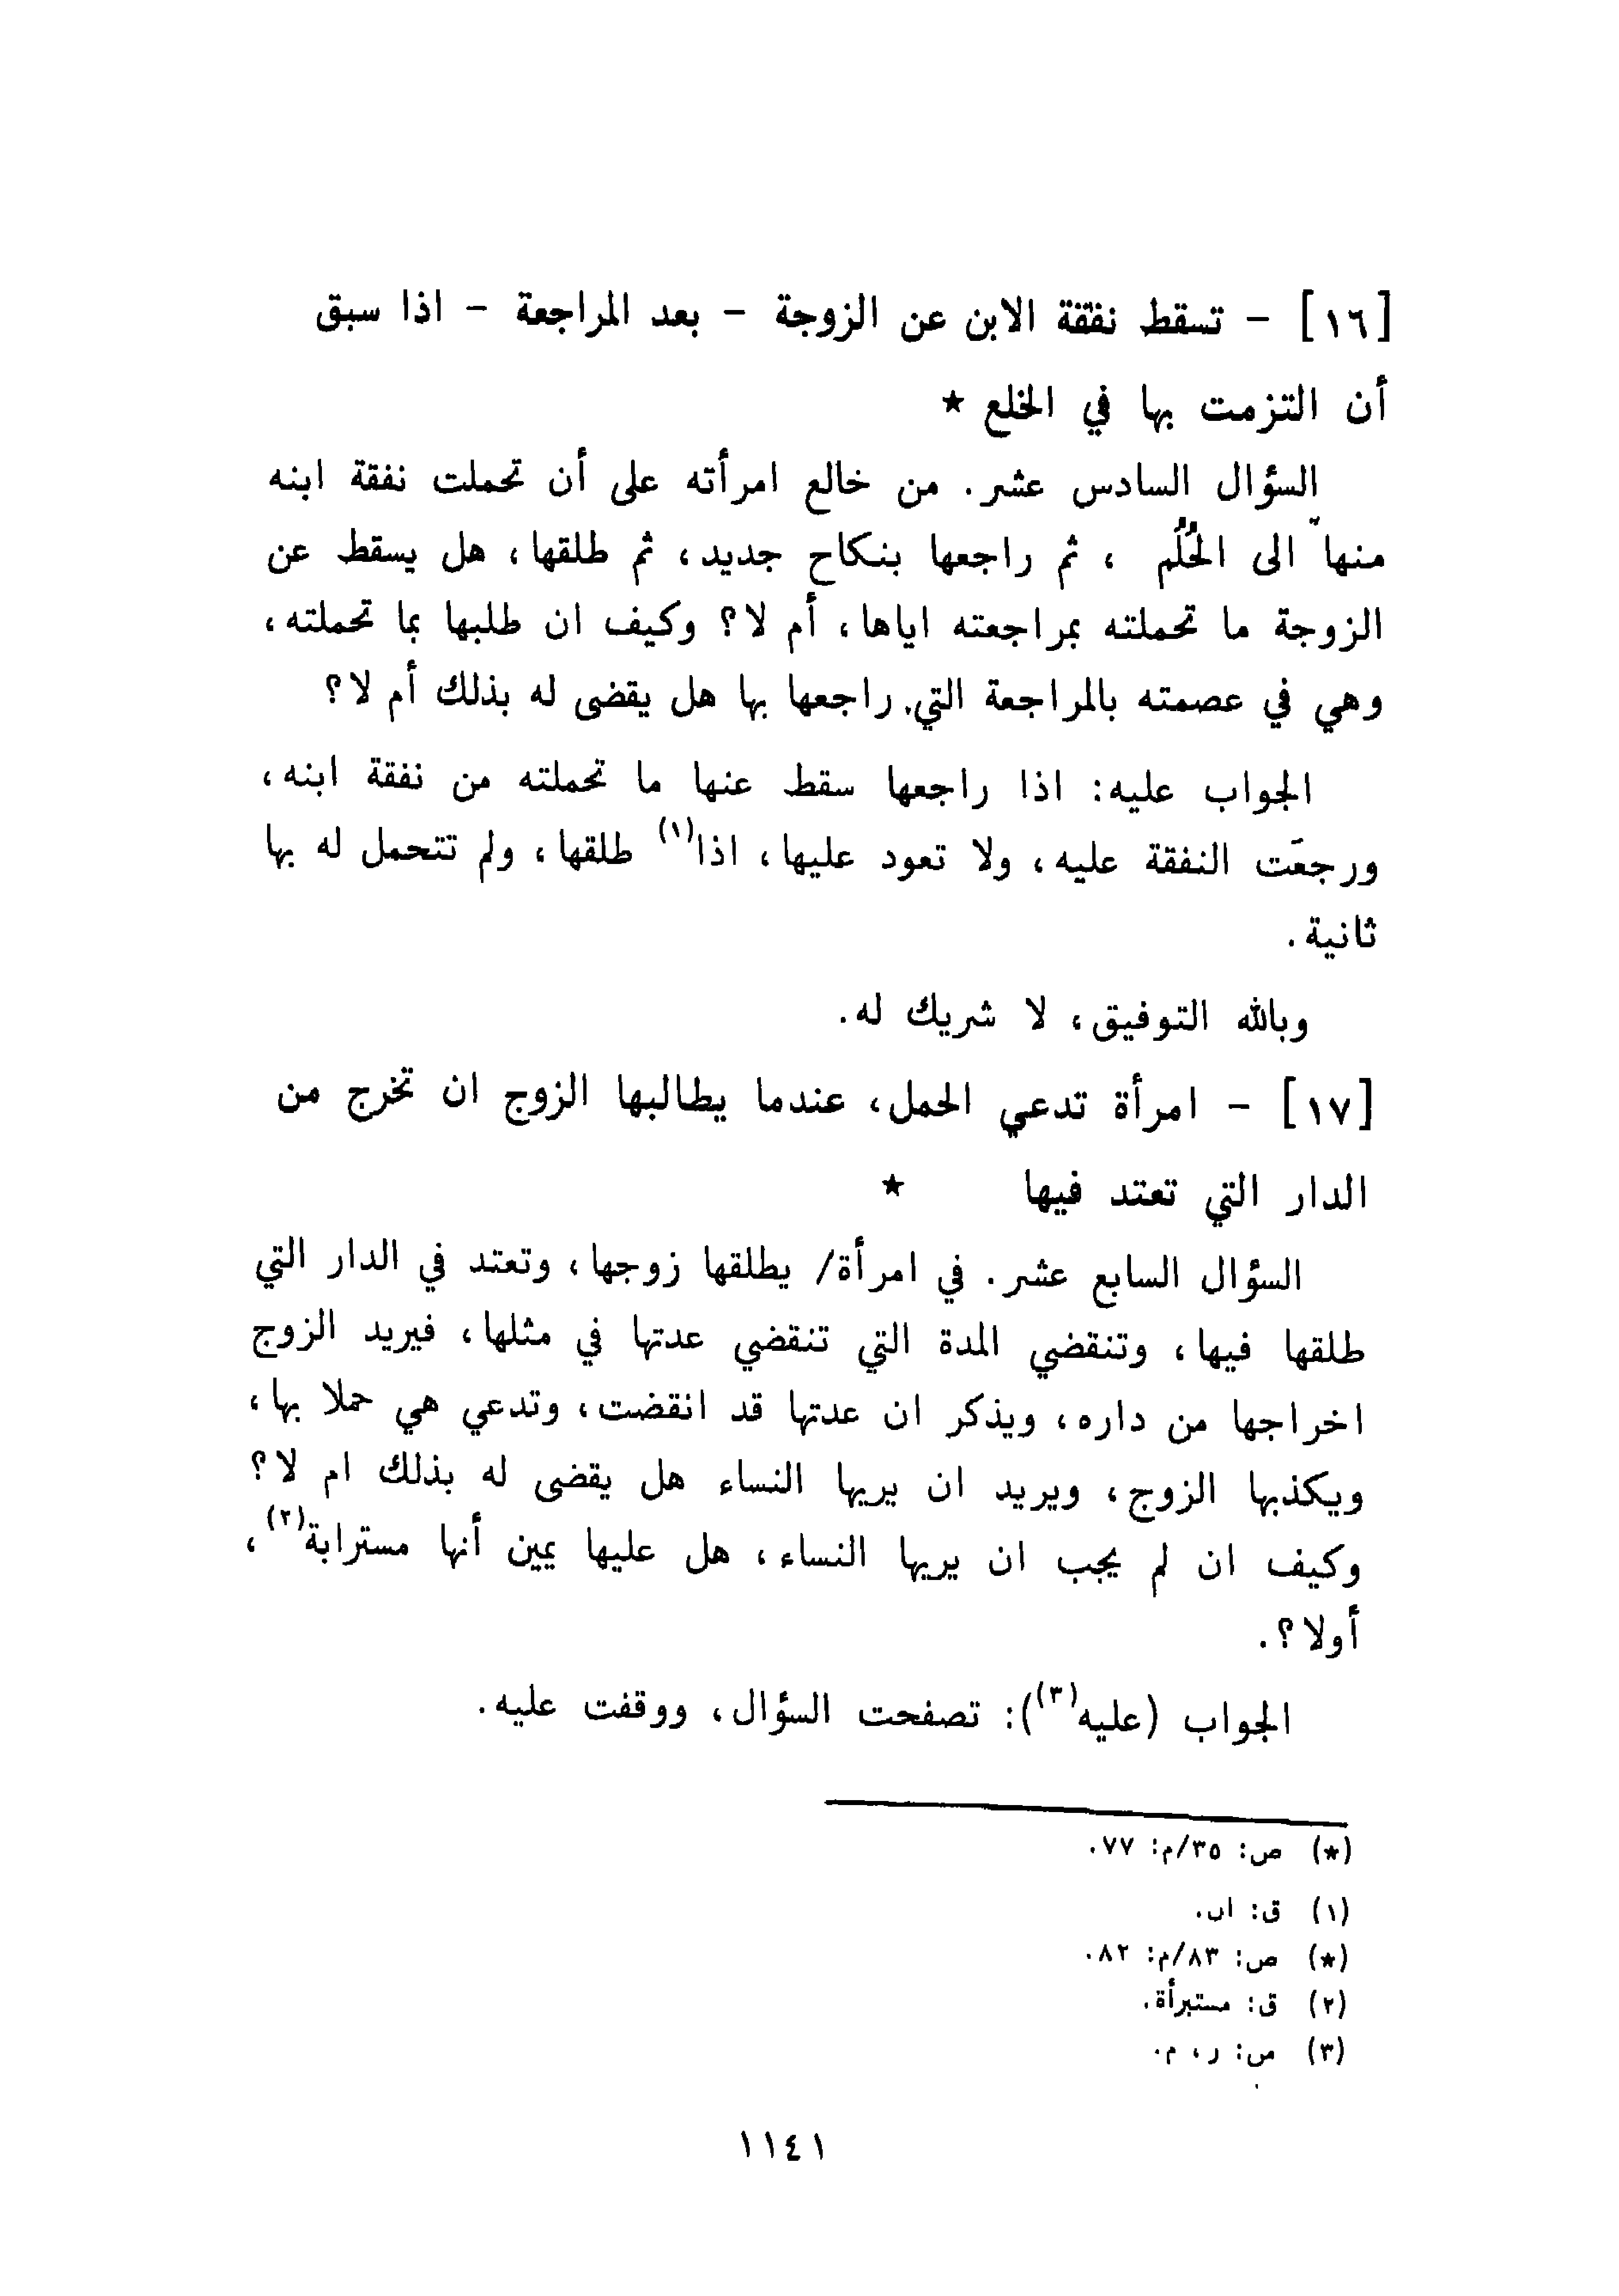 [١٦] - تسقط نفقة الابن عن الزوجة - بعد المراجعة - اذا سبق
أن التزمت بها في الخلع ★
السؤال السادس عشر. من خالع امرأته على أن تحملت نفقة ابنه
منها الى الحُلُم ، ثم راجعها بنكاح جديد، ثم طلقها، هل يسقط عن
الزوجة ما تحملته بمراجعته اياها، أم لا؟ وكيف ان طلبها بما تحملته،
وهي في عصمته بالمراجعة التي راجعها بها هل يقضى له بذلك أم لا؟
الجواب عليه: اذا راجعها سقط عنها ما تحملته من نفقة ابنه،
ورجعَت النفقة عليه، ولا تعود عليها، اذا(١) طلقها، ولم تتحمل له بها
ثانية.
وبالله التوفيق، لا شريك له.
[١٧] - امرأة تدعي الحمل، عندما يطالبها الزوج ان تخرج من
الدار التي تعتد فيها ★
السؤال السابع عشر. في امرأة/ يطلقها زوجها، وتعتد في الدار التي
طلقها فيها، وتنقضي المدة التي تنقضي عدتها في مثلها، فيريد الزوج
اخراجها من داره، ويذكر ان عدتها قد انقضت، وتدعي هي حملا بها،
ويكذبها الزوج، ويريد ان يريها النساء هل يقضى له بذلك ام لا؟
وكيف ان لم يجب ان يريها النساء، هل عليها يمين أنها مسترابة(٢)،
أولا؟.
الجواب (عليه(٣)): تصفحت السؤال، ووقفت عليه.
(★) ص: ٣٥/م: ٧٧.
(١) ق: ان.
(★) ص: ٨٣/م: ٨٢.
(٢) ق: مستبرأة.
(٣) س: ر، م.
١١٤١